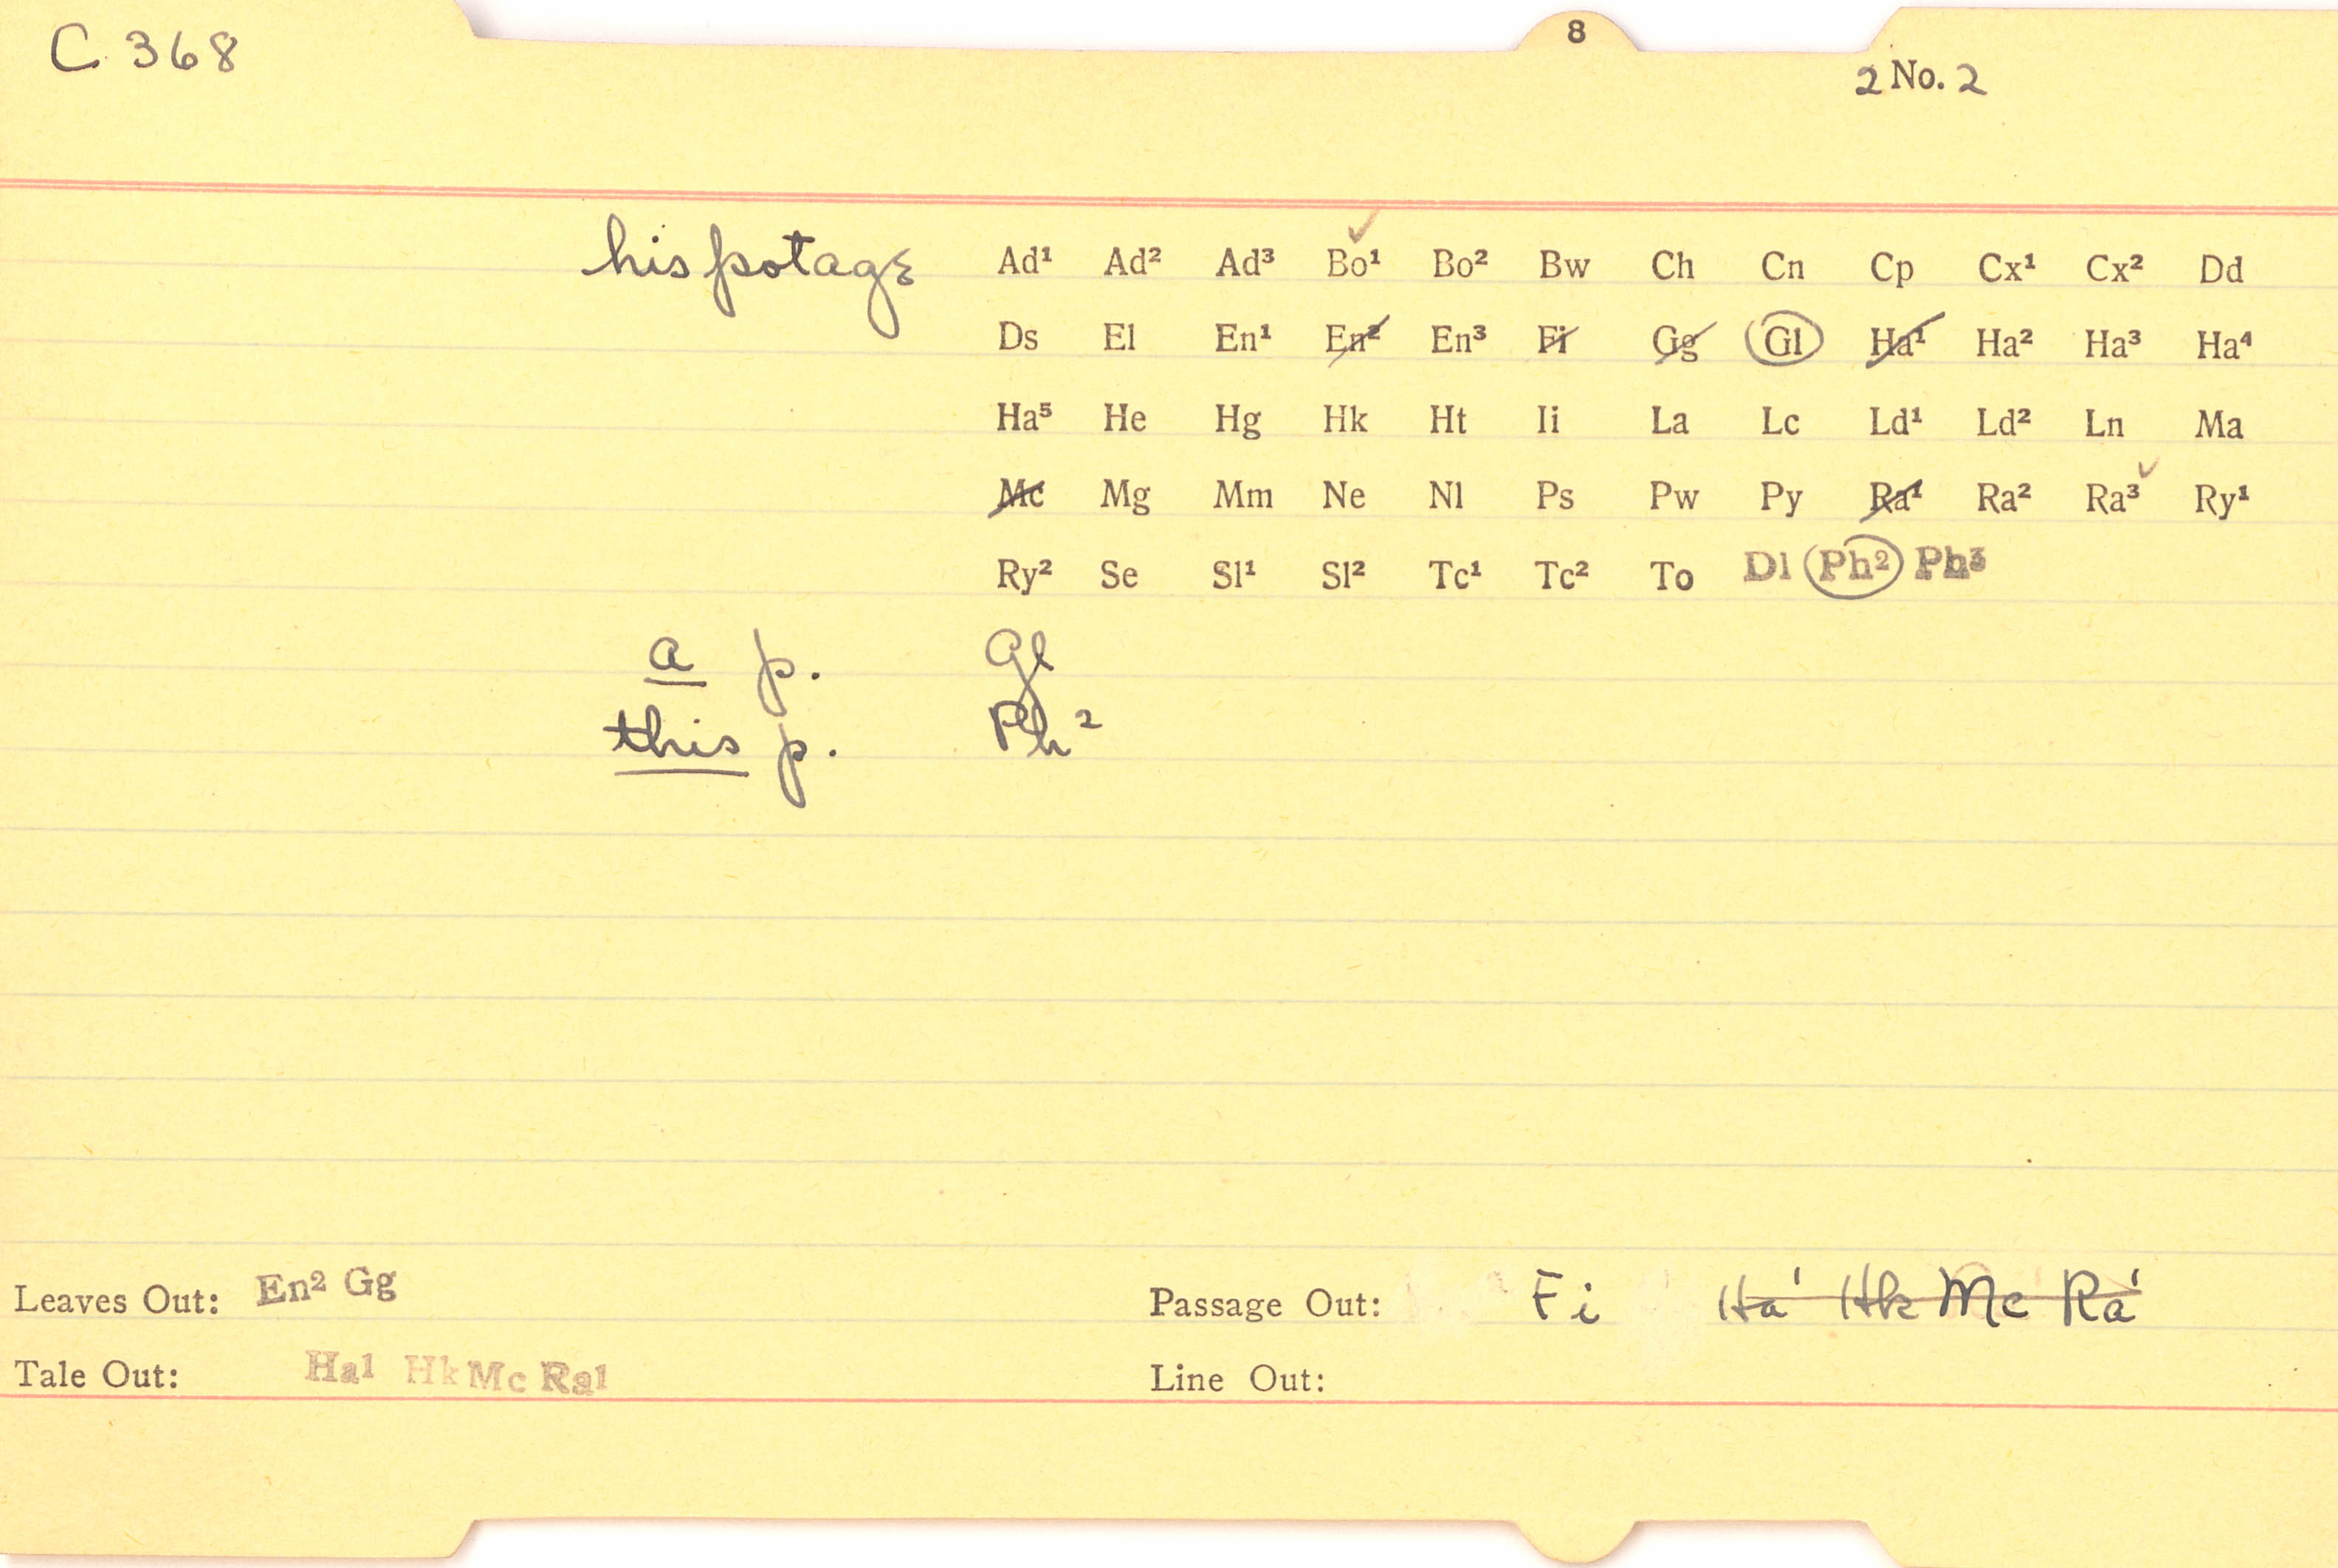 8
C 368
2 No. 2
his potage Ad¹ Ad² Ad³ Bo¹ Bo² Bw Ch Cn Cp Cx¹ Cx² Dd
Ds El En¹ En² En³ Fi Gg Gl Ha¹ Ha² Ha³ Ha⁴
Ha⁵ He Hg Hk Ht Ii La Lc Ld¹ Ld² Ln Ma
Mc Mg Mm Ne Nl Ps Pw Py Ra¹ Ra² Ra³ Ry¹
Ry² Se Sl¹ Sl² Tc¹ Tc² To Dl Ph² Ph³
a p. Gl
this p. Ph²
Leaves Out: En² Gg Passage Out: Fi Ha¹ Hk Mc Ra¹
Tale Out: Ha1 Hk Mc Ra1 Line Out: